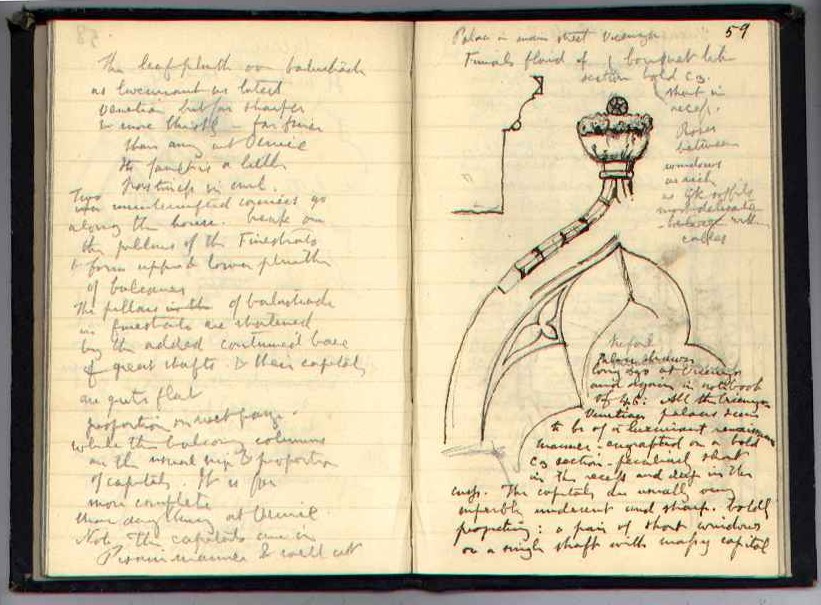 The leaf plinth on balustrade
as luxuriant as latest
Venetian but far sharper
& more thistly - far finer
than any at Venice
the is a little
in owl.
Two uninterrupted cornices go
along the house. break on
the pillars of the Finestrata
& form upper & lower plinths
of balconies
The pillars in the of balustrade
in finestrata are shortened
by the added continued base
of great shafts. & their capitals
are quite flat
proportion on next page.
while the balcony columns
are the usual & proportion
of capitals. It is far
more complete
than any thing at Venice.
Note. the capitals are in
Pisan manner & well cut
59
Palace in main street Vicenza
Finials fluid of bouquet like
section bold C3.
short in
recess.
Ropes
between
windows
as rich
as Gk
most delicate
with
cables
before
Palace drawn
long ago at Vicenza
and again in notebook
of 46: All the Vicenza
Venetian palaces seem
to be of a luxuriant renaissance
manner - engrafted on a bold
C3 section - peculiarly short
in the recess and deep in the
cusp. The capitals are usually very
superbly undercut and sharp. boldly
projecting: a pair of short windows
on a single shaft with massy capital